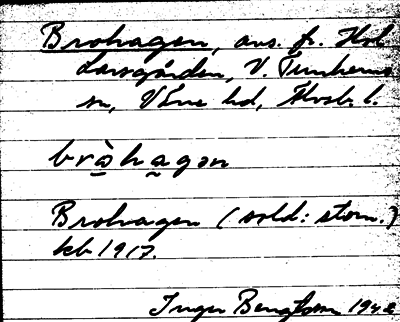 Brohagen, avs. fr. Hol
Larsgården, V. Tunhems
sn, Väne hd, Älvsb. l.
bràhagən
Brohagen (sold: stom.)
kb 1917.
Inger Bengtsson 1942